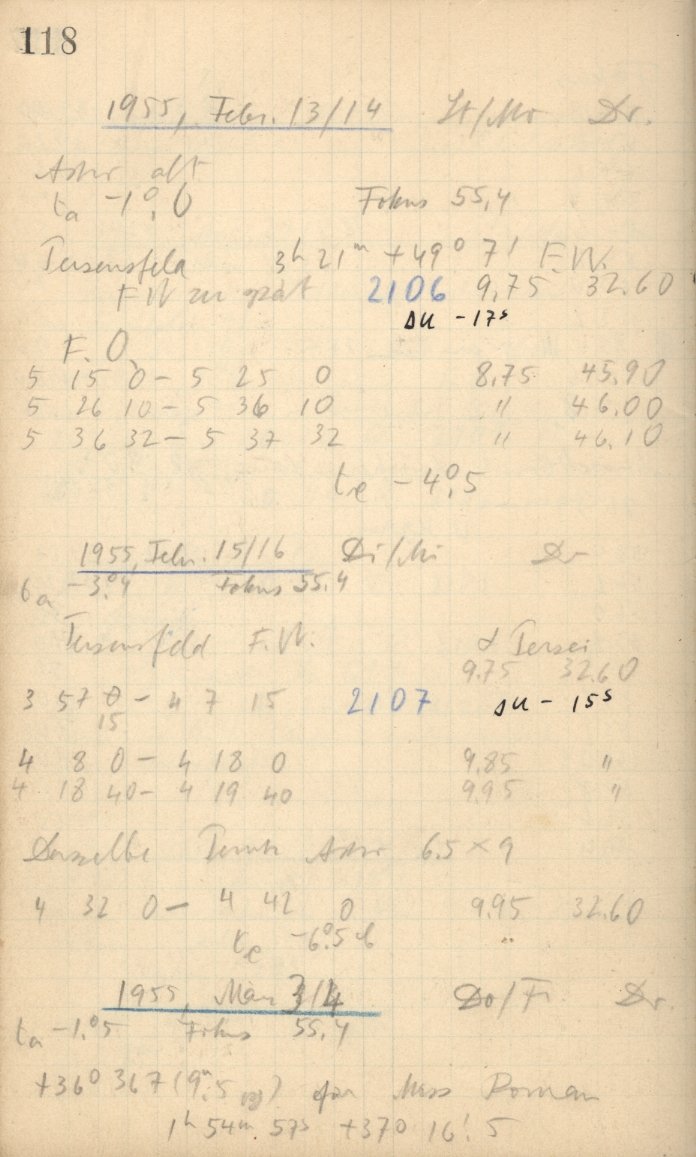 118
1955, Febr. 13/14 St/Mo Dr.
Astro alt
ta -1°,0 Fokus 55,4
Perseusfeld 3h 21m +49° 7' F.W.
FW zu spät 2106 9,75 32.60
Δu -17s
F. O.
5 15 0 – 5 25 0 8,75 45.90
5 26 10 – 5 36 10 " 46.00
5 36 32 – 5 37 32 " 46.10
te -4°,5
1955, Febr. 15/16 Di/Mi Dr
ta -3°,4 Fokus 55.4
Perseusfeld F.W. α Persei
9.75 32.60
3 57 0 – 4 7 15 2107 Δu – 15s
15
4 8 0 – 4 18 0 9.85 "
4 18 40 – 4 19 40 9.95 "
Dasselbe Astro 6.5 × 9
4 32 0 – 4 42 0 9.95 32.60
te -6°,5
1955, März 3/4 Do/Fr Dr.
ta -1,°5 Fokus 55,4
+36° 367 (9m,5 pg) for Miss Roman
1h 54m 57s +37° 16',5